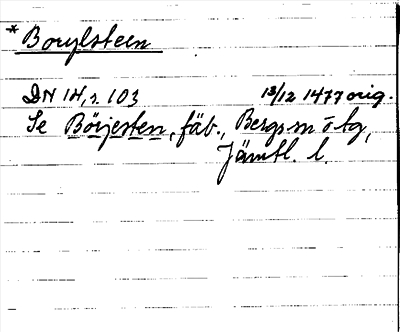 * Borylsteen
DN 14, s. 103 13/12 1477 orig.
Se Börjesten, fäb., Bergs sn o tg,
Jämtl. l.